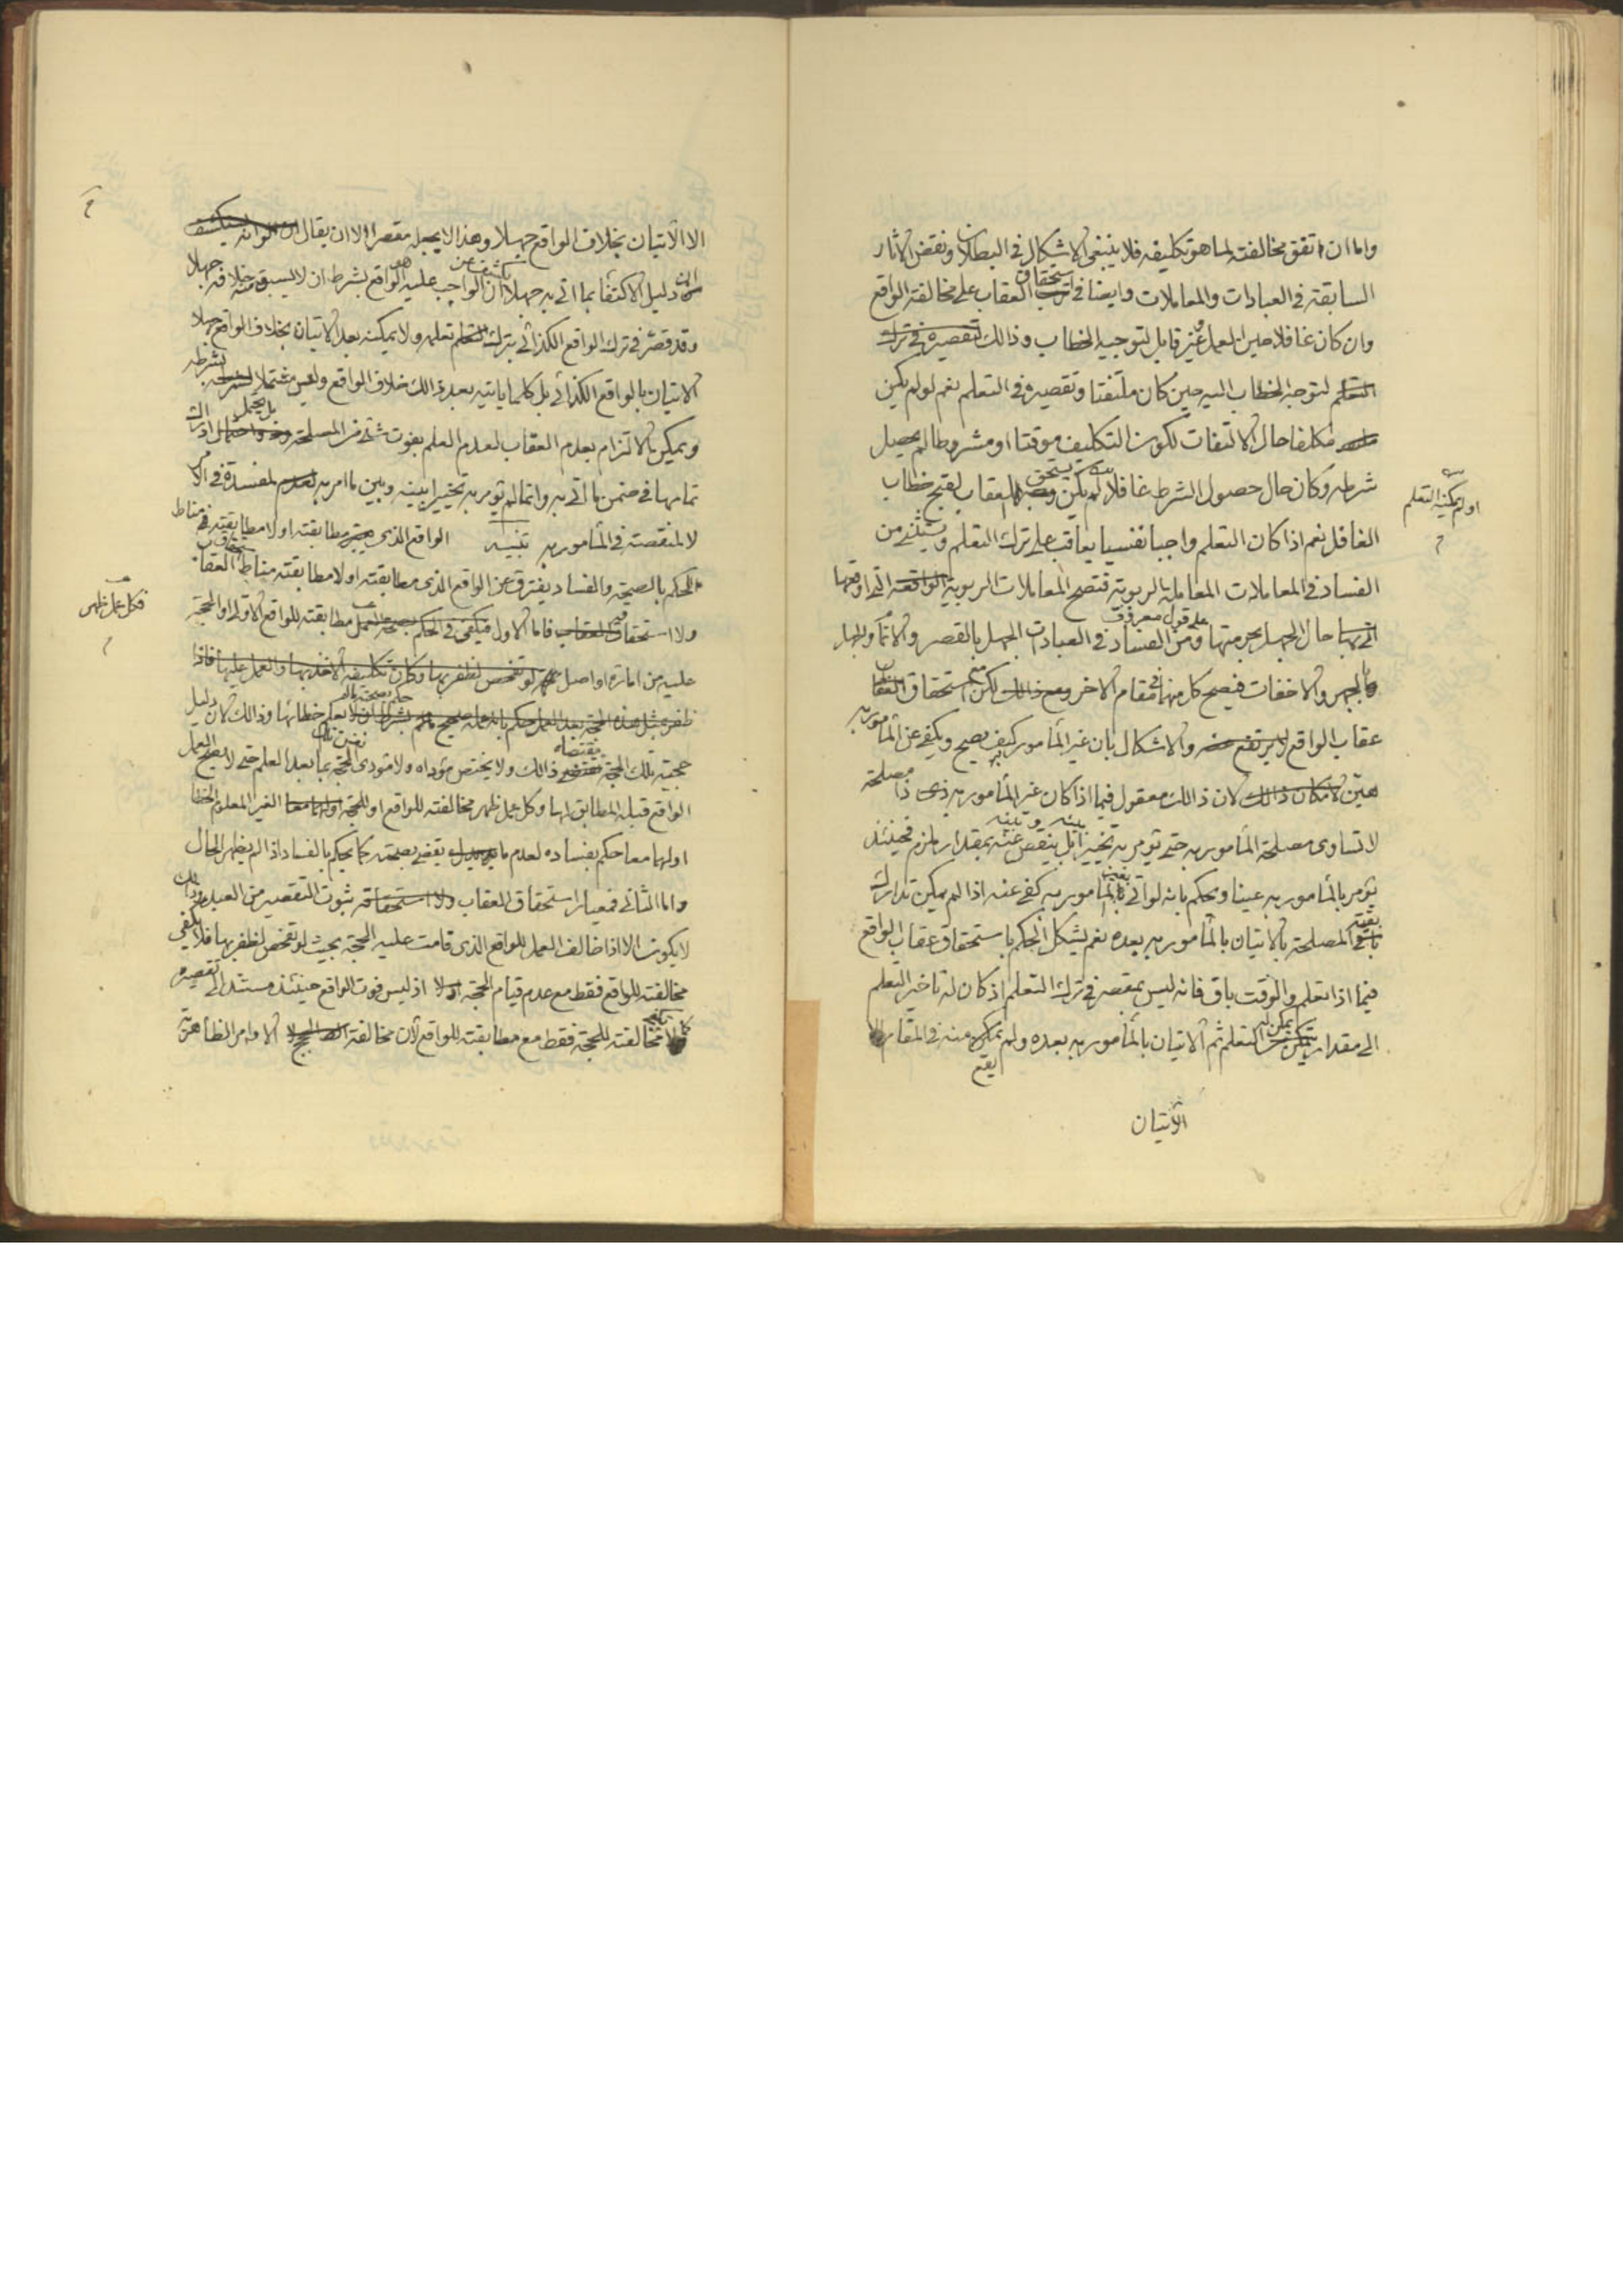 واما ان اتفق مخالفته لما هو تكليفه فلا ينبغي الاشكال في البطلان ونقض الاثار
السابقة في العبادات والمعاملات وايضا في استحقاق العقاب على مخالفة الواقع
وان كان غافلا حين العمل وغير قابل لتوجيه الخطاب وذالك لتقصيره في ترك
التعلم لتوجه الخطاب اليه حين كان ملتفتا وتقصيره في التعلم نعم لو لم يكن
مكلفا حال الالتفات لكون التكليف موقتا او مشروطا لم يحصل
شرطه وكان حال حصول الشرط غافلا لم يكن يستحق العقاب لقبح خطاب
او لم يمكنه التعلم
الغافل نعم اذا كان التعلم واجبا نفسيا يعاقب على ترك التعلم ويستثنى من
الفساد في المعاملات المعاملة الربوية فتصح المعاملات الربوية الواقعة التي اوقعها
حال الجهل بحرمتها ومن الفساد في العبادات على قول معروف الجهل بالقصر والاتمام والجهل
بالجهر والاخفات فيصح كل منهما في مقام الاخر مع استحقاق العقاب
عقاب الواقع لا يرتفع والاشكال بان غير المأمور به كيف يصح ويكفي عن المأمور به
هين لامكان ذالك لان ذالك معقول فيما اذا كان غير المأمور به ذا مصلحة
لا تساوى مصلحة المأمور به حتى يؤمر به تخييرا بينه وبينه بل ينقص عنه بمقدار يلزم فحينئذ
يؤمر بالمأمور به عينا ويحكم بانه لو اتى بغير المأمور به كفى عنه اذا لم يكن تدارك
بقية المصلحة بالاتيان بالمأمور به بعده نعم يشكل الحكم باستحقاق عقاب الواقع
فيما اذا تعلم والوقت باق فانه ليس بمقصر في ترك التعلم اذ كان له تاخير التعلم
الى مقدار يمكن له التعلم ثم الاتيان بالمأمور به بعده ولم يقع منه في المقام الا
الاتيان
الا الاتيان بخلاف الواقع جهلا وهذا لا يجعله مقصرا الا ان يقال
ان دليل الاكتفا بما اتى به جهلا يكشف عن ان الواجب عليه هو الواقع بشرط ان لا يسبق منه خلافه جهلا
وقد قصر في ترك الواقع الكذائي بترك تعلمه ولا يمكنه بعد الاتيان بخلاف الواقع جهلا
الاتيان بالواقع الكذائي بل كلما ياتيه بعد ذالك خلاف الواقع وليس مشتملا لشرطه
ويمكن الالتزام بعدم العقاب لعدم العلم بفوت شئ من المصلحة بل يحتمل ادراك
تمامها في ضمن ما اتى به وانما لم يؤمر به تخييرا بينه وبين ما امر به لمفسدة في الامر
لا لمنقصة في المأمور به تنبيه الواقع الذى مطابقته او لا مطابقته مناط
الحكم بالصحة والفساد يفترق عن الواقع الذى مطابقته او لا مطابقته مناط استحقاق العقاب
ولا استحقاق فاما الاول فيكفي في الحكم بصحة العمل مطابقته للواقع الاولى او للحجة
فكل عمل ظهر
عليه من امارة او اصل لو تفحص لظفر بها وكان تكليفه الاخذ بها والعمل عليها فاذا
ظفر بمثل هذه الحجة بعد العمل حكم بصحته ما لم يعلم خطائها وذالك لان دليل
حجية تلك الحجة يقتضى ذالك ولا يختص مؤداه ولا مؤدى نفس تلك الحجة بما بعد العلم حتى لا يصح العمل
الواقع قبله المطابق لها وكل عمل ظهر مخالفته للواقع او للحجة الغير المعلوم الخطا
او لهما معا حكم بفساده لعدم ما يقضى بصحته كما يحكم بالفساد اذا لم يظهر الحال
واما الثاني فمعيار استحقاق العقاب ولا استحقاقه ثبوت التقصير من العبد وذالك
لا يكون الا اذا خالف العمل للواقع الذى قامت عليه الحجة بحيث لو تفحص لظفر بها فلا يكفي
مخالفته للواقع فقط مع عدم قيام الحجة اذ ليس فوت الواقع حينئذ مستندا الى تقصيره
ولا مخالفته للحجة فقط مع مطابقته للواقع لان مخالفة الاوامر الظاهرية